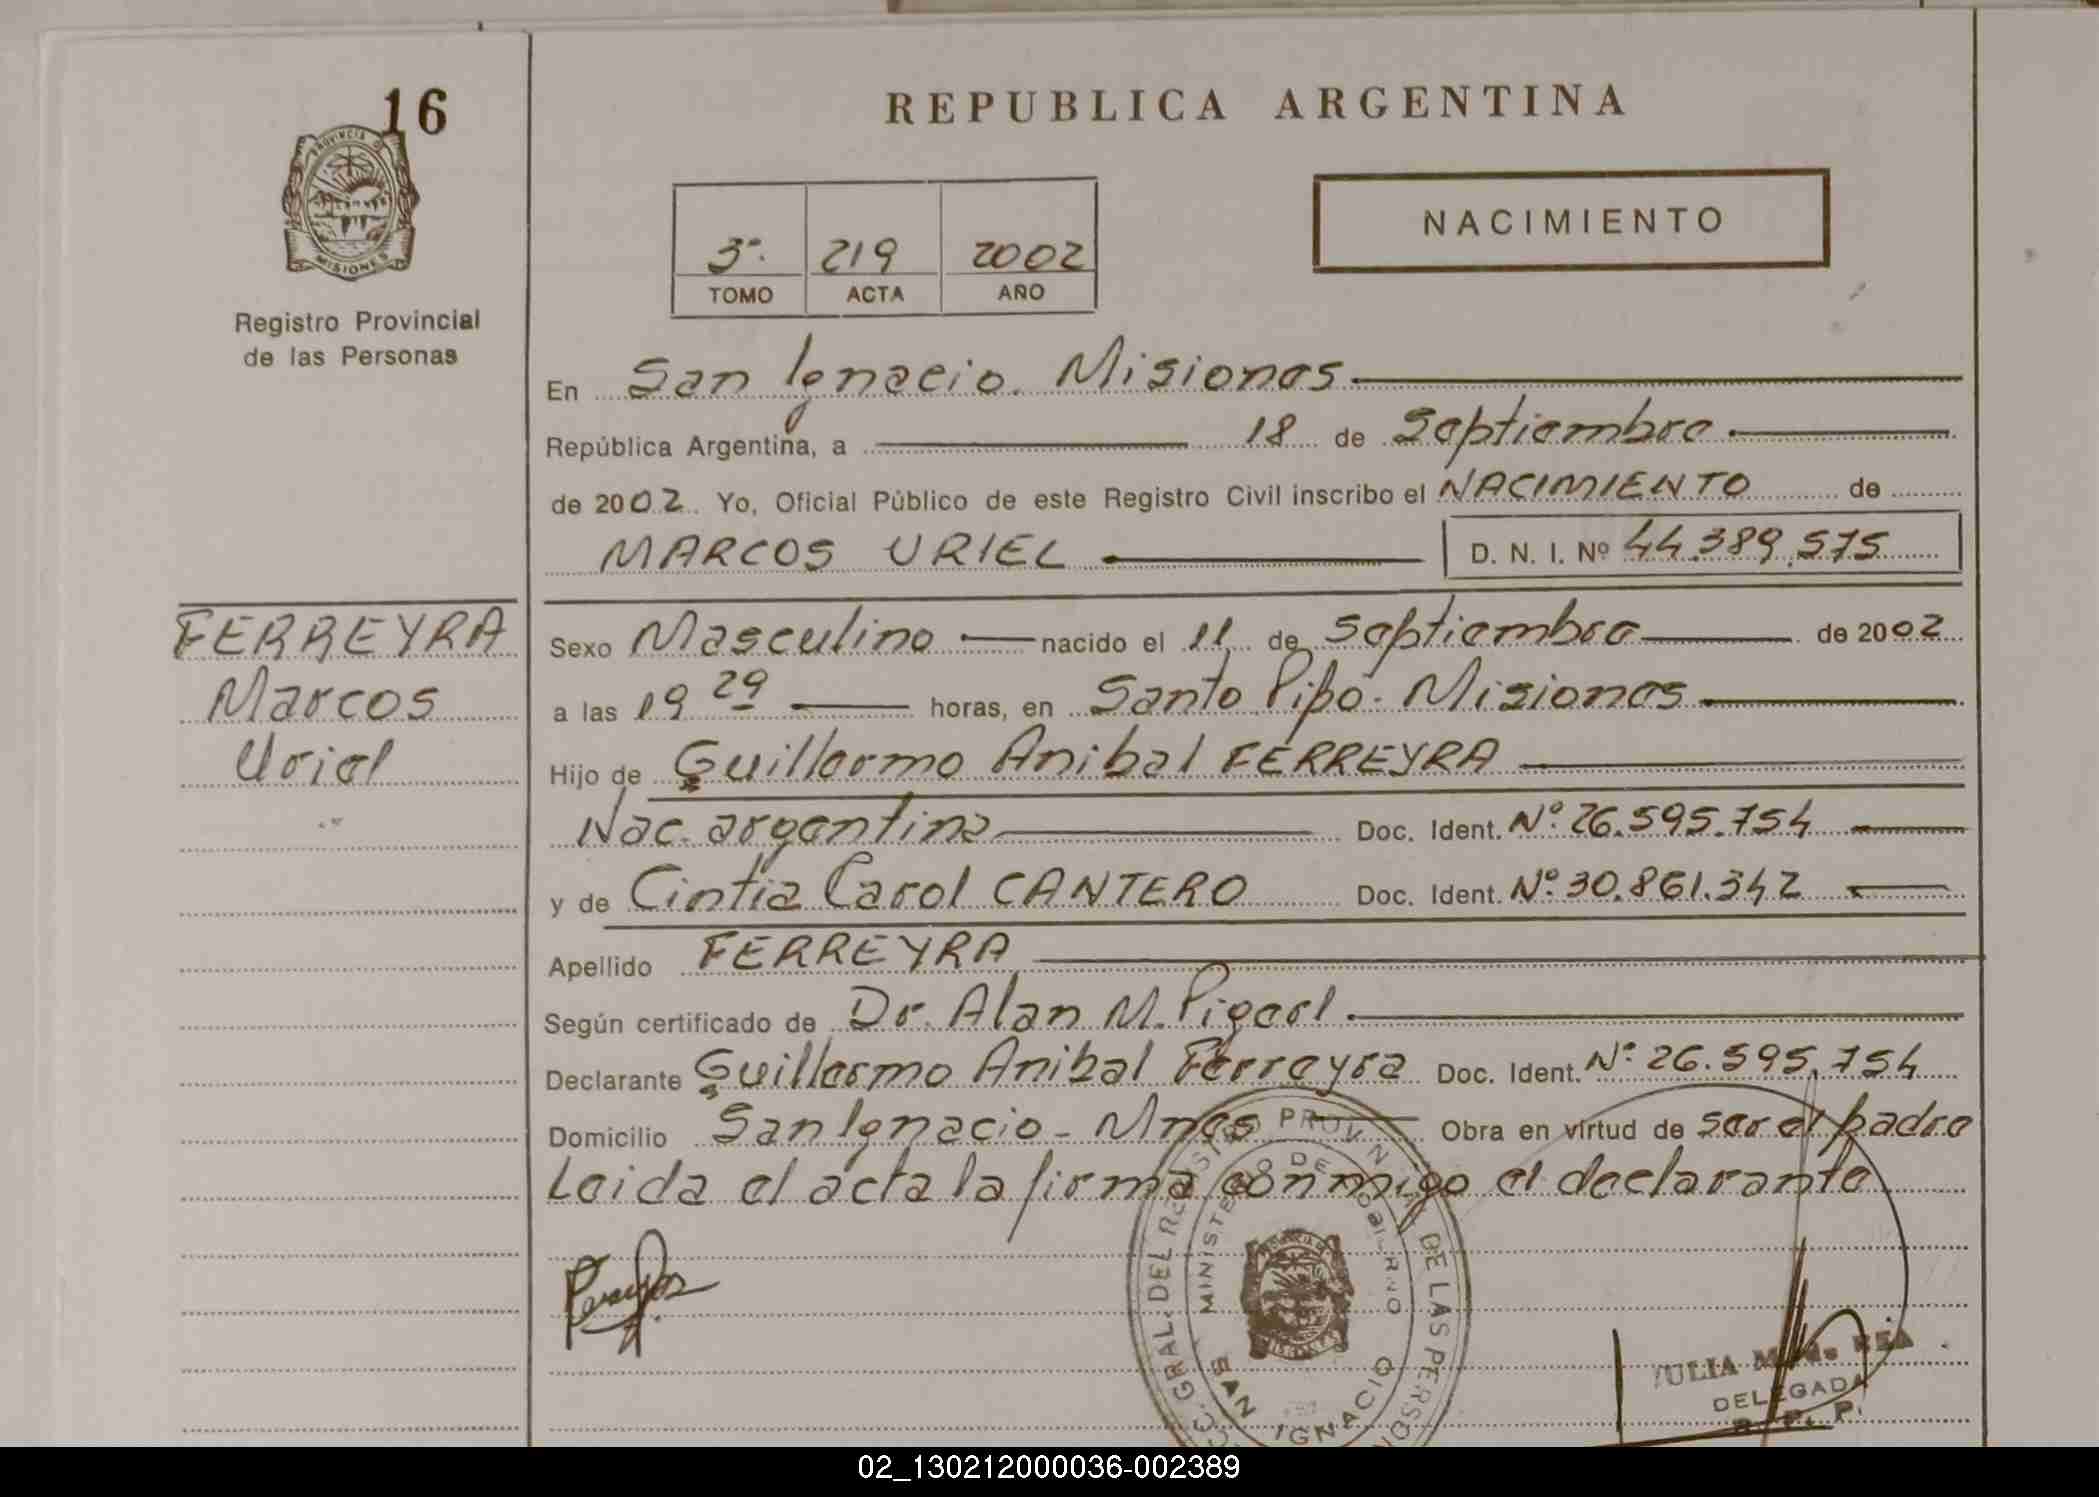 16
PROVINCIA D
MISIONES
Registro Provincial
de las Personas
REPUBLICA ARGENTINA
3º. 219 2002
TOMO ACTA AÑO
NACIMIENTO
En San Ignacio. Misiones
República Argentina, a 18 de Septiembre
de 2002. Yo, Oficial Público de este Registro Civil inscribo el NACIMIENTO de
MARCOS URIEL D. N. I. Nº 44.389.575
FERREYRA
Marcos
Uriel
Sexo Masculino nacido el 11 de Septiembre de 2002
a las 19 29 horas, en Santo Pipó. Misiones
Hijo de Guillermo Anibal FERREYRA
Nac. argentina Doc. Ident. Nº 26.595.754
y de Cintia Carol CANTERO Doc. Ident. Nº 30.861.342
Apellido FERREYRA
Según certificado de Dr. Alan M. Pigerl
Declarante Guillermo Anibal Ferreyra Doc. Ident. Nº 26.595.754
Domicilio San Ignacio - Mnes Obra en virtud de ser el padre
Leida el acta la firma conmigo el declarante
GRAL. DEL PROVIN DE LAS PERSON
MINISTE O DE
SAN IGNACIO
JULIA
DELEGADA
R. P. P.
02_130212000036-002389